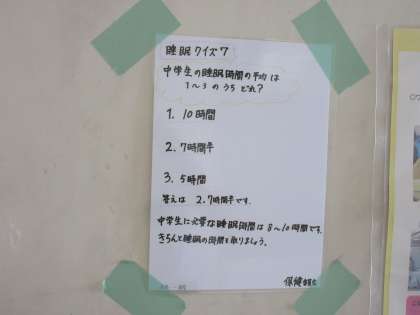 睡眠クイズ7
中学生の睡眠時間の平均は
1～3のうちどれ?
1. 10時間
2. 7時間半
3. 5時間
答えは 2.7時間半です。
中学生に必要な睡眠時間は8～10時間です。
きちんと睡眠の時間を取りましょう。
保健